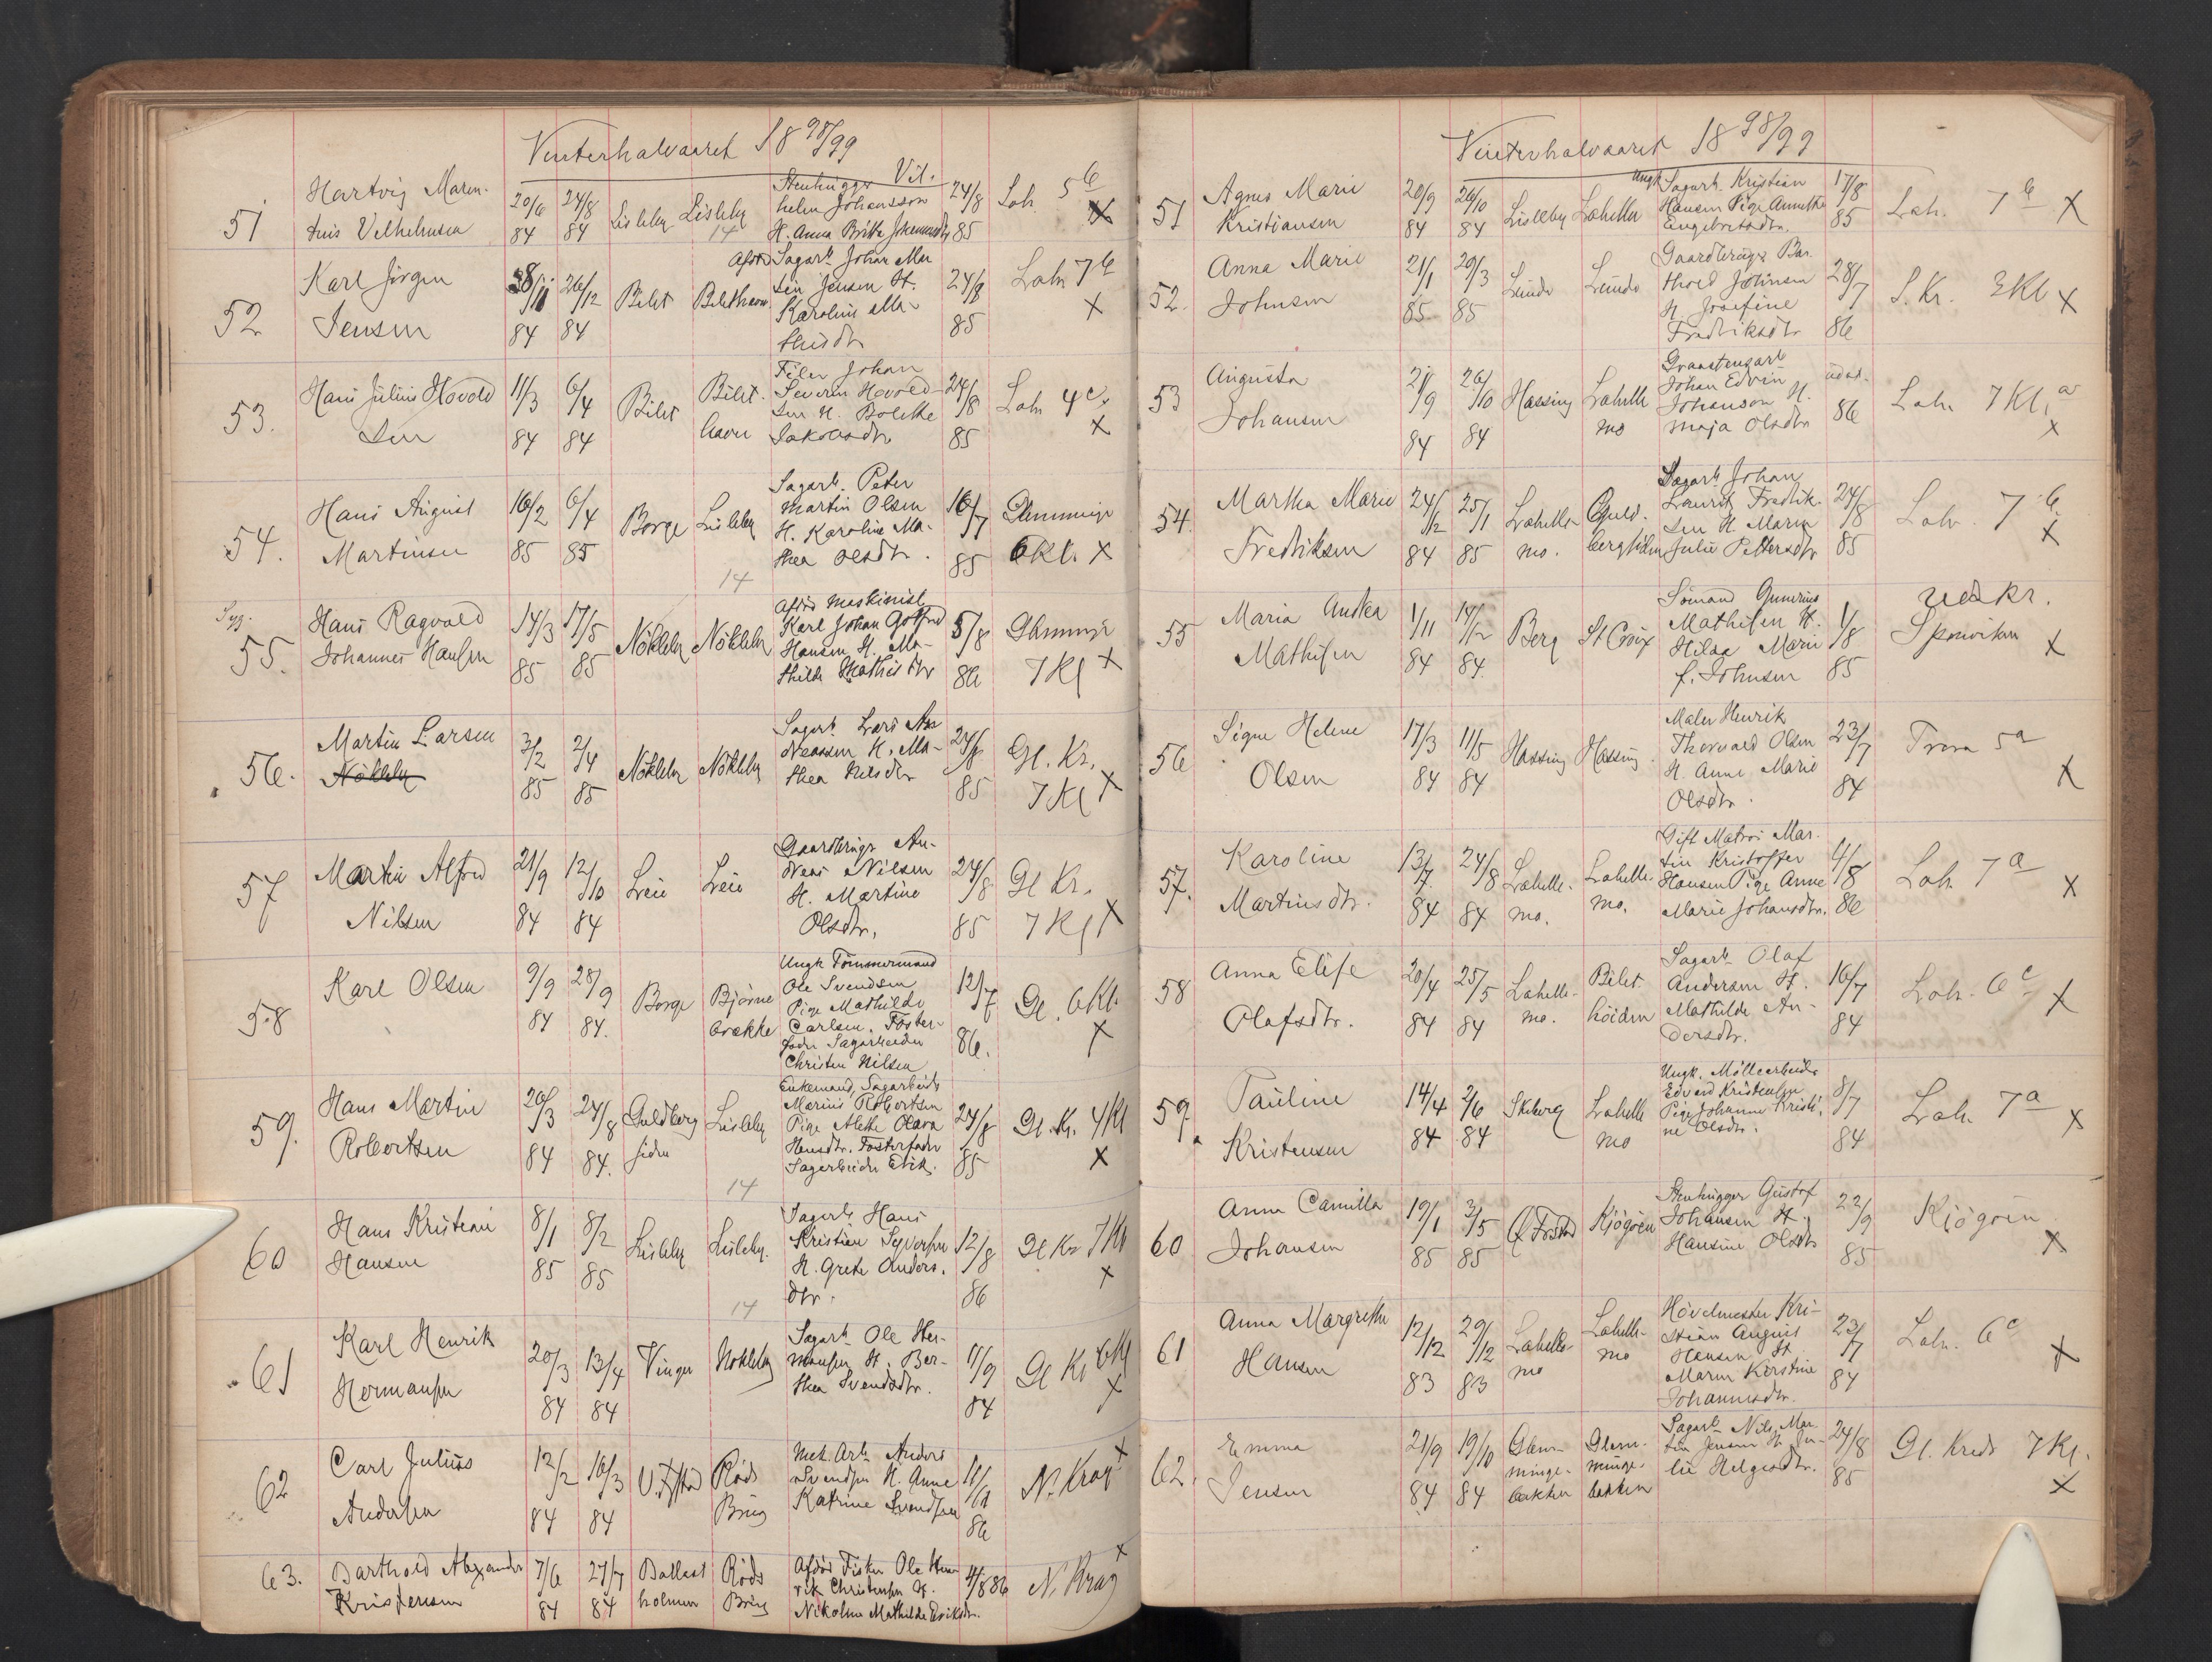 Vinterhalvaaret 18 98/99
51 Hartvig Maren-
tius Velhelmsen 20/6 84 24/8 84 Lisleby Lisleby 14
Stenhugger Vil-
helm Johansson
H. Anna Britta Johannesdtr 24/8 85 Lah. 5 b X
52 Karl Jörgen
Jensen 84 26/12 84 Bilet Bilethavn
Afdöd Sagarb. Johan Mar
tin Jensen H.
Karoline Ma-
thisdtr 24/8 85 Lah 7 b X
53. Hans Julius Hovold
sen 11/3 84 6/4 84 Bilet Bilet.
havn
Filer Johan
Severin Hovold-
sen H. Bolette
Jakobsdtr 24/8 85 Lah 4 c. X
54. Hans August
Martinsen 16/2 85 6/4 85 Borge Lisleby
Sagarb. Peter
Martin Olsen
H. Karoline Ma-
thea Olsdtr. 16/7 85 Glemminge
6 Kl. X
14
Syg.
55. Hans Ragvald
Johannes Hansen 14/3 85 17/5 85 Nökleby Nökleby
Afdöd Maskinist
Karl Johan Gotfred
Hansen H. Ma-
thilde Mathisdtr 5/8 86 Glemminge
7 Kl X
56. Martin Larsen
Nökleby 3/2 85 2/4 85 Nökleby Nökleby
Sagarb. Lars An
dreassen H. Ma-
thea Nilsdtr 24/8 85 Gl. Kr.
7 Kl X
57 Martin Alfred
Nilsen 21/9 84 12/10 84 Leie Leie
Gaardbruger An-
dreas Nilsen
H. Martine
Olsdtr. 24/8 85 Gl Kr.
7 Kl X
58 Karl Olsen 9/9 84 28/9 84. Borge Bjørne
brække
Ungk Tömmermand
Ole Svendsen
Pige Mathilde
Carlsen. Foster-
fader Sagarbeider
Christen Nilsen 12/7 86. Gl. 6 Kl. X
59. Hans Martin
Robertsen 20/3 84 24/8 84. Guldberg
siden Lisleby
Enkemand, Sagarbeider
Marius Robertsen
Pige Alette Olava
Hansdtr. Fosterfader
Sagarbeider Erik. 24/8 85 Gl. Kr. 4 Kl X
14
60 Hans Kristian
Hansen 8/1 85 8/2 85 Lisleby Lisleby.
Sagarb. Hans
Kristian Syversen
H. Grete Anders.
dtr. 12/8 86 Gl Kr 7 Kl X
14
61 Karl Henrik
Hermansen 20/3 84 13/4 84 Vinger Nokleby
Sagarb. Ole Her-
mansen H. Ber-
thea Svendsdtr. 11/9 84 Gl Kr 6 Kl X
62 Carl Julius
Andersen 12/2 84 16/3 84 V. Fstad Röds
Brug
Mek. Arb. Anders
Svendsen H. Anne
Katrine Svendsen 86 N. Krag X
63. Barthold Alexander
Kristensen 7/6 84 27/7 84 Ballast
holmen Röds
Brug
Afdöd Fisker Ole Hen
rik Christensen H.
Nikoline Mathilde Eriksdtr. 4/8 86 N. Krag X
Vinterhalvaaret 18 98/99
51 Agnes Marie
Kristiansen 20/9 84 26/10 84 Lisleby Lahelle
Ungk Sagarb. Kristian
Hansen Pige Annette
Engebretsdtr. 17/8 85 Lah. 7 b X
52. Anna Marie
Johnsen 21/1 85 29/3 85 Lunde Lunde
Gaardbruger Bar
thold Johnsen
H. Josefine
Fredriksdtr 28/7 86 S. Kr. 2 Kl X
53 Augusta
Johansen 21/9 84 26/10 84 Hassing Lahelle
mo
Graastensarb
Johan Edvin
Johanson H.
Maja Olsdtr 86 Lah. 7 Kl. a X
54. Martha Marie
Fredriksen 24/12 84 25/1 85 Lahelle-
mo. Guld-
bergsiden
Sagarb. Johan
Laurits Fredrik-
sen H. Maren
Julie Pettersdtr 24/8 85 Lah. 7 b. X
55 Maria Andrea
Mathisen 1/11 84 14/12 84. Berg St Croix
Sömand Gunerius
Mathisen H.
Hilda Marie
f. Johnsen 1/8 85 Uda Kr.
Sponviken X
56 Signe Helene
Olsen 17/3 84 11/5 84 Hassing Hassing.
Maler Henrik
Thorvald Olsen
H. Anne Marie
Olsdtr. 23/7 84 Trara 5 a X
57. Karoline
Martinsdtr. 13/7 84 24/8 84 Lahelle-
mo. Lahelle-
mo.
Gift Matros Mar-
tin Kristoffer
Hansen Pige Anne
Marie Johansdtr. 4/8 86 Lah. 7 a X
58 Anna Elise
Olafsdtr. 20/4 84 25/5 84 Lahelle-
mo. Bilet
höiden
Sagarb Olaf
Andersen H.
Mathilde An-
dersdtr. 16/7 84 Lah. 6 c X
59. Pauline
Kristensen 14/4 84 2/6 84 Skiberg Lahelle
mo
Ungk. Möllearbeider
Edvard Kristensen
Pige Johanne Kristi-
ne Olsdtr. 8/7 84 Lah. 7 a X
60 Anna Camilla
Johansen 19/1 85 3/5 85 Ö Fstad Kjögöen
Stenhugger Gustaf
Johansen H.
Hansine Olsdtr 22/9 85 Kjögöen X
61 Anna Margrethe
Hansen 12/12 83 29/12 83 Lahelle
mo Lahelle-
mo
Hövelmester Kri-
stian August
Hansen H
Maren Kirstine
Johannesdtr. 23/7 84 Lah. 6 c X
62. Emma
Jensen 21/9 84 19/10 84 Glem-
minge-
bakken Glem-
minge-
bakken
Sagarb. Nils Mar-
tin Jensen H. Ju-
lie Helgesdtr. 24/8 85 Gl. Kreds 7 Kl. X